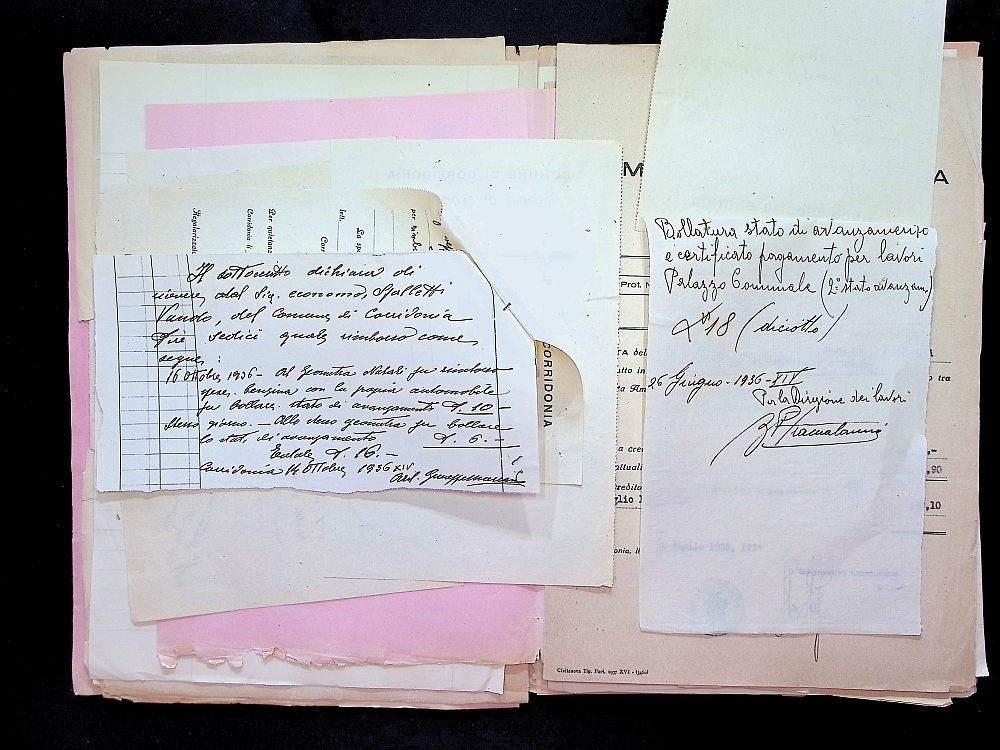 Il sottoscritto dichiara di
ricevere dal Sig. economo Spalletti
Vando, del Comune di Corridonia
lire sedici quale rimborso come
segue:
16 Ottobre 1936 - Al Geometra Natali per rimborso
spese benzina con la propria automobile
per bollare stato di avanzamento £. 10 -
Stesso giorno. - Allo stesso geometra per bollare
lo stato di avanzamento £. 6. -
Totale £. 16. -
Corridonia 16 Ottobre 1936 XIV
Bollatura stato di avanzamento
e certificato pagamento per lavori
Palazzo Comunale (2° stato di avanzam)
18 (diciotto)
26 Giugno - 1936 - XIV
Per la Direzione dei lavori
Regolarizzata
Corridonia lì
Per quietanza
La
per
CORRIDONIA
COMUNE DI CORRIDONIA
M
A
Prot. N
TA del
,90
,10
glio
onia, lì
Civitanova Tip. Pari, 1937 XVI - (3960)